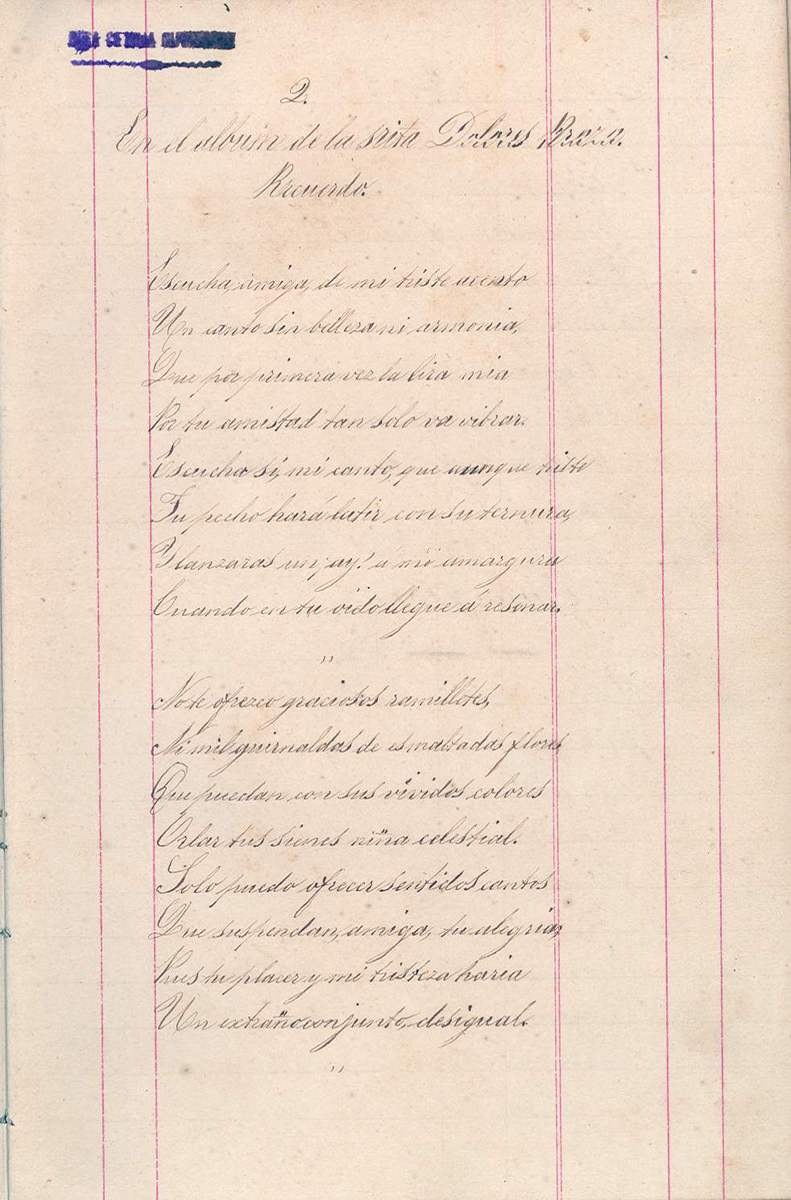 2.
En el album de la srita Dolores
Recuerdo.
Escucha, amiga, de mi triste acento
Un canto sin belleza ni armonia,
Que por primera vez la lira mia
Por tu amistad tan solo va vibrar.
Escucha sí, mi canto, que aunque triste
Tu pecho hará latir con su ternura,
Y lanzaras un ¡ay! á mi amargura
Cuando en tu oido llegue á resonar.
"
No te ofrezco graciosos ramilletes,
Ni mil guirnaldas de esmaltadas flores
Que puedan con sus vívidos colores
Orlar tus sienes niña celestial.
Solo puedo ofrecer sentidos cantos
Que suspendan, amiga, tu alegria,
Pues tu placer y mi tristeza haria
Un extraño conjunto, desigual.
"